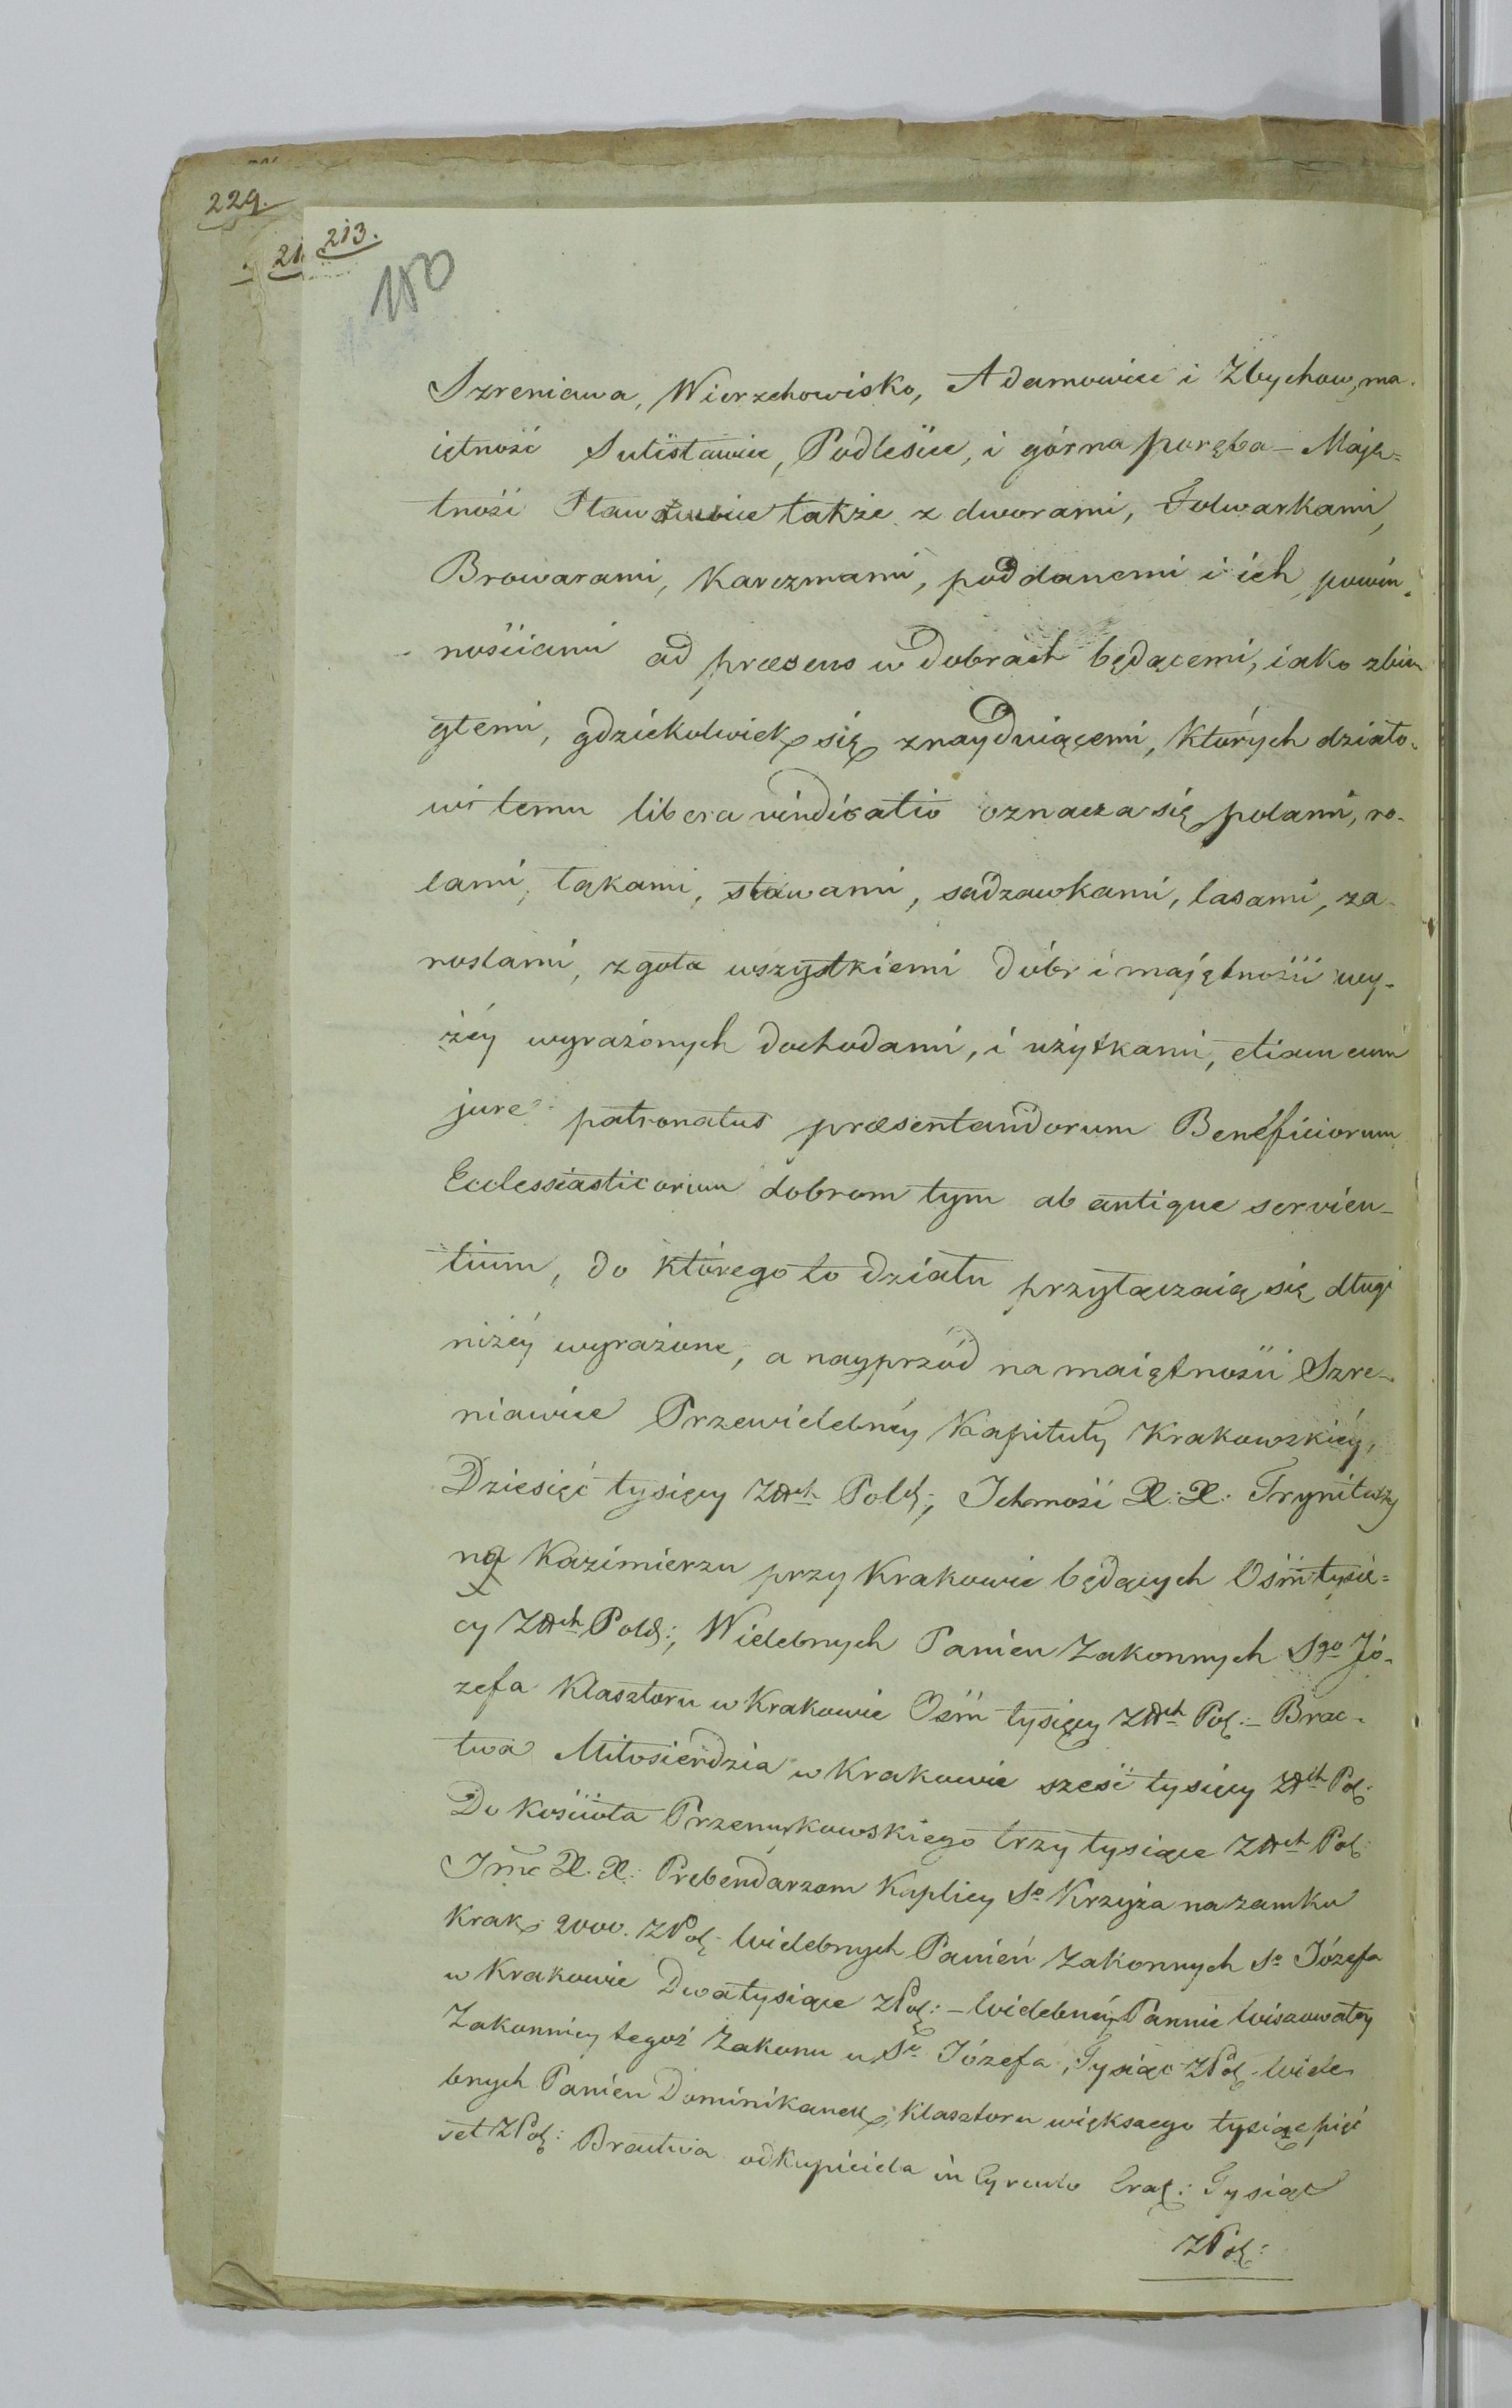 229.
21
213.
Szreniawa, Wierzchowisko, Adamowice i Zbychow, ma-
iętność Sulistawice, Podlesice, i górna poręba – Maję=
tności także z dworami, Folwarkami,
Browarami, Karczmami, poddanemi i ich powin-
nościami ad præsens w dobrach będącemi, iako zbie
głemi, gdziekolwiek się znayduiącemi, których działo-
wi temu libera vindicatio oznacza się polami, ro-
lami, łąkami, stawami, sadzawkami, lasami, za-
roslami, zgoła wszystkiemi dóbr i majętności wy-
żéy wyrażonych dochodami, i użytkami, etiam cum
jure patronatus præsentandorum Beneficiorum
Ecclessiasticorum dobrom tym ab antique servien-
tium, do którego to działu przyłączaią się długi
niżéy wyrażone, a nayprzód na maiętności Szre-
niawice Przewielebnéy Kapituły Krakowskiéy,
Dziesięć tysięcy Złłch Polch; Ichmość X: X: Trynitarzy
na Kazimierzu przy Krakowie będących Ośm tysię=
cy Złłch Polch:, Wielebnych Panien Zakonnych Sgo Jó-
zefa Klasztoru w Krakowie Ośm tysięcy Złłch Pol: – Brac-
twa Miłosierdzia w Krakowie sześć tysięcy Złłch Pol:
Do Kościoła Przemykowskiego trzy tysiące Złłch Pol:
Jmć X. X: Prebendarzom Kaplicy So Krzyża na zamku
Krak. 2000. ZPol: Wielebnych Panień Zakonnych So Józefa
w Krakowie Dwa tysiące ZPol: – Wielebnéy Pannie Wiszowatey
Zakonnicy tegoż Zakonu u So Józefa, Tysiąc ZPol – Wiele
bnych Panien Dominikanek, Klasztoru większego tysiąc pięć
set ZPol: Bractwa odkupiciela in Cyrculo Crac: Tysiąc
ZPol: